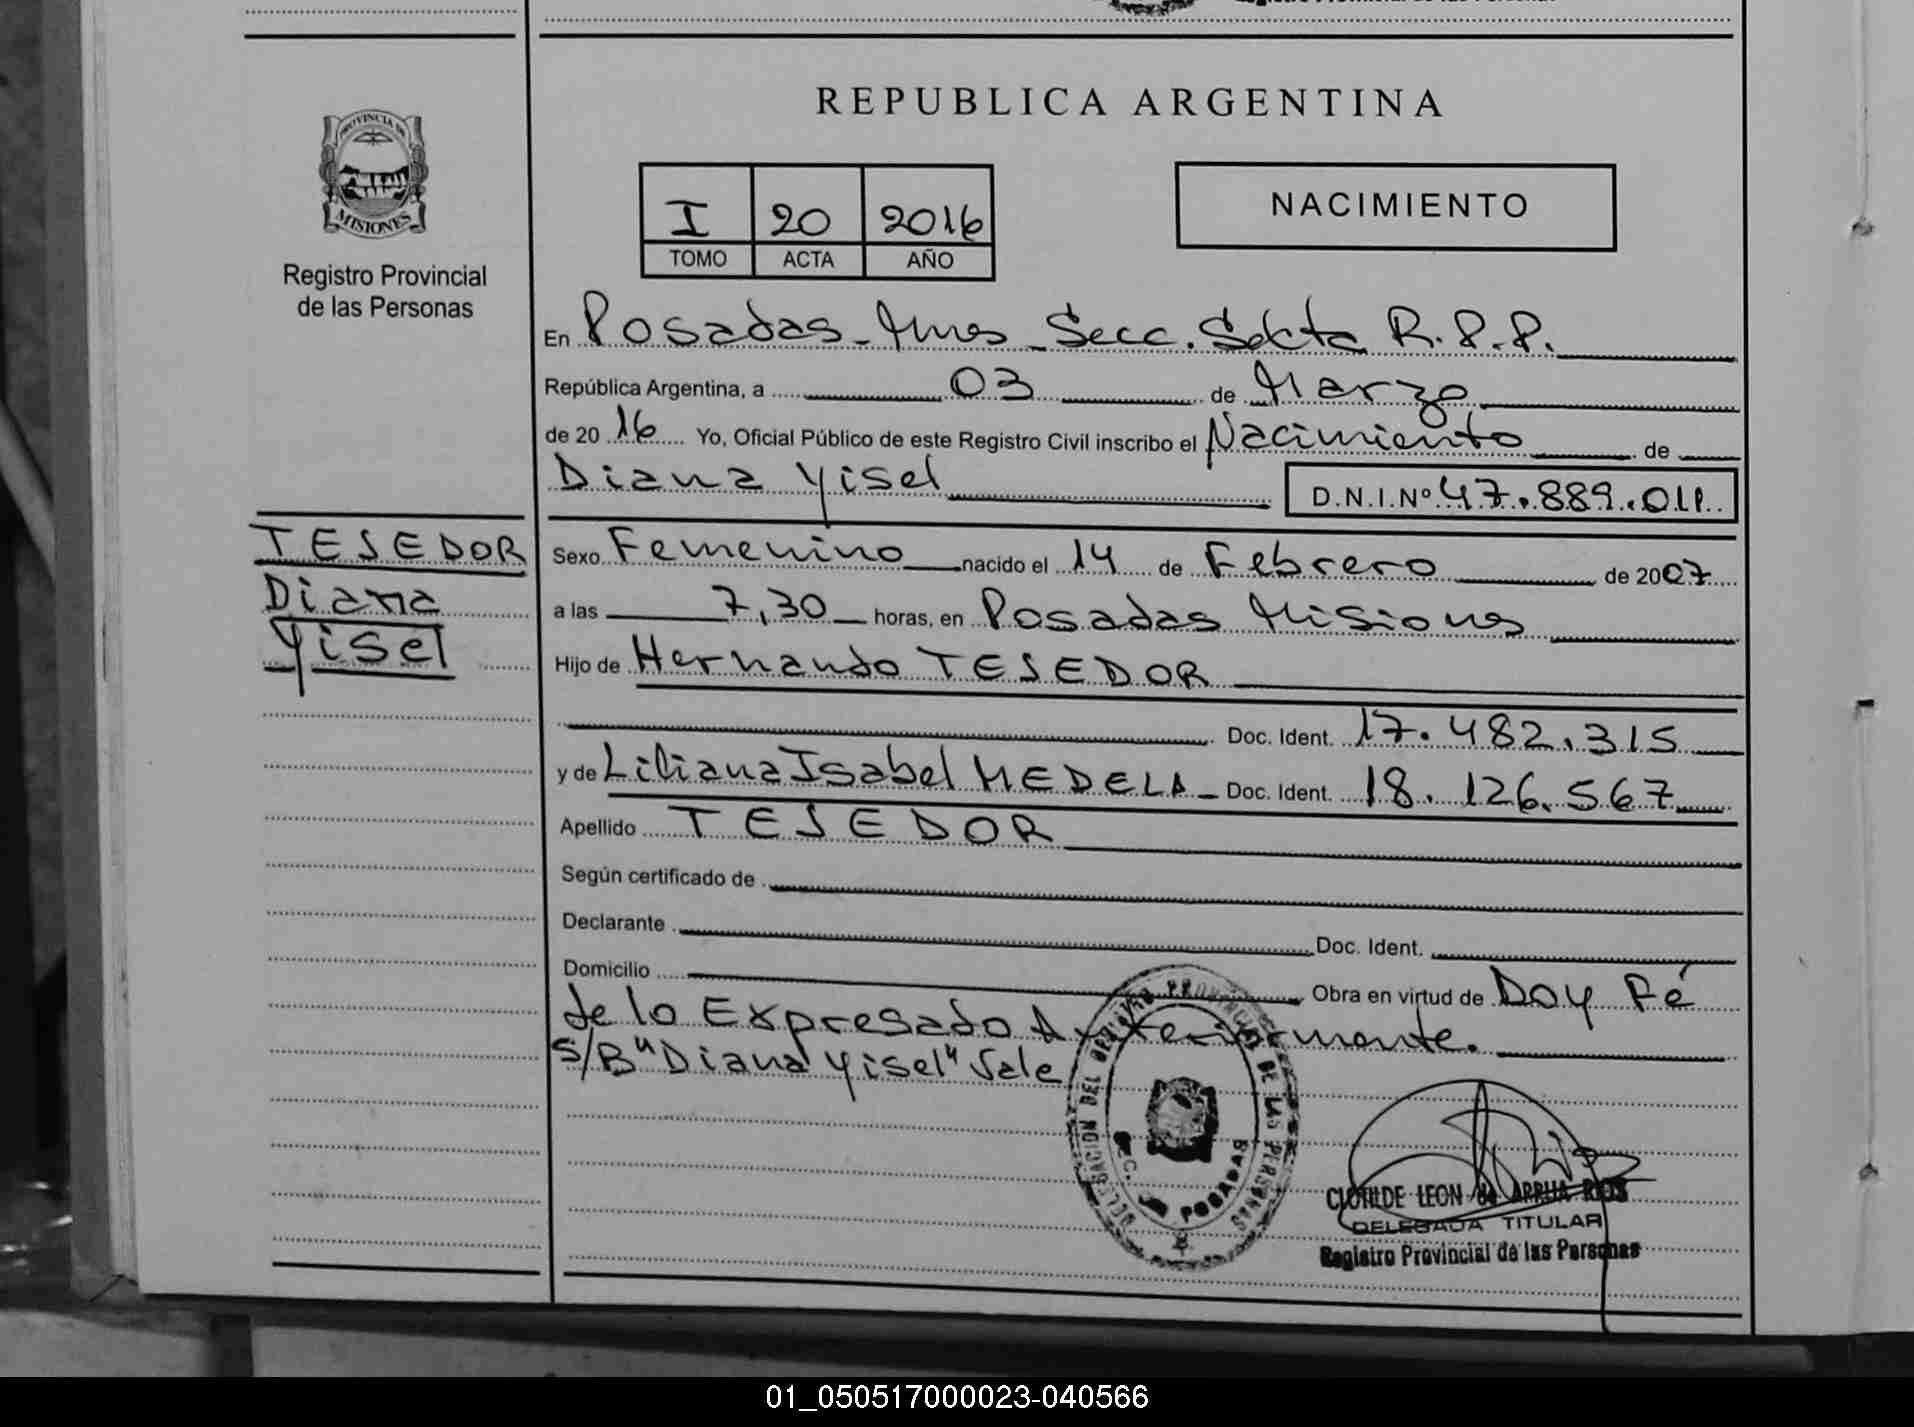 REPUBLICA ARGENTINA
PROVINCIA DE
MISIONES
Registro Provincial
de las Personas
I 20 2016
TOMO ACTA AÑO
NACIMIENTO
En Posadas - Mnes - Secc. Sexta R.P.P.
República Argentina, a 03 de Marzo
de 2016 Yo, Oficial Público de este Registro Civil inscribo el Nacimiento de
Diana Yisel D.N.I.Nº 47.889.011
TESEDOR
Diana
Yisel
Sexo Femenino nacido el 14 de Febrero de 2007
a las 7,30 horas, en Posadas Misiones
Hijo de Hernando TESEDOR
Doc. Ident. 17.482.315
y de Liliana Isabel MEDELA - Doc. Ident. 18.126.567
Apellido TESEDOR
Según certificado de
Declarante Doc. Ident.
Domicilio Obra en virtud de Doy Fé
de lo Expresado Anteriormente.
S/B "Diana Yisel" Vale
POSADAS
CLOTILDE LEON de ARRUA RIOS
DELEGADA TITULAR
Registro Provincial de las Personas
01_050517000023-040566